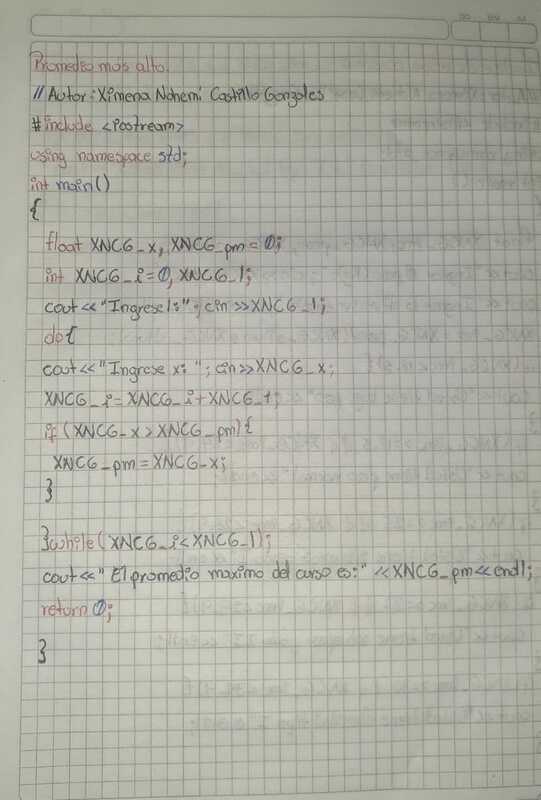 Promedio mas alto.
// Autor: Ximena Nohemi Castillo Gonzales
#include <iostream>
using namespace std;
int main()
{
float XNCG_x, XNCG_pm = 0;
int XNCG_i=0, XNCG_l;
cout<<"Ingrese l:"; cin>>XNCG_l;
do{
cout<<"Ingrese x: "; cin>>XNCG_x;
XNCG_i=XNCG_i+XNCG_1;
if (XNCG_x>XNCG_pm){
XNCG_pm=XNCG_x;
}
}while(XNCG_i<XNCG_l);
cout<<" El promedio maximo del curso es:" <<XNCG_pm<<endl;
return 0;
}